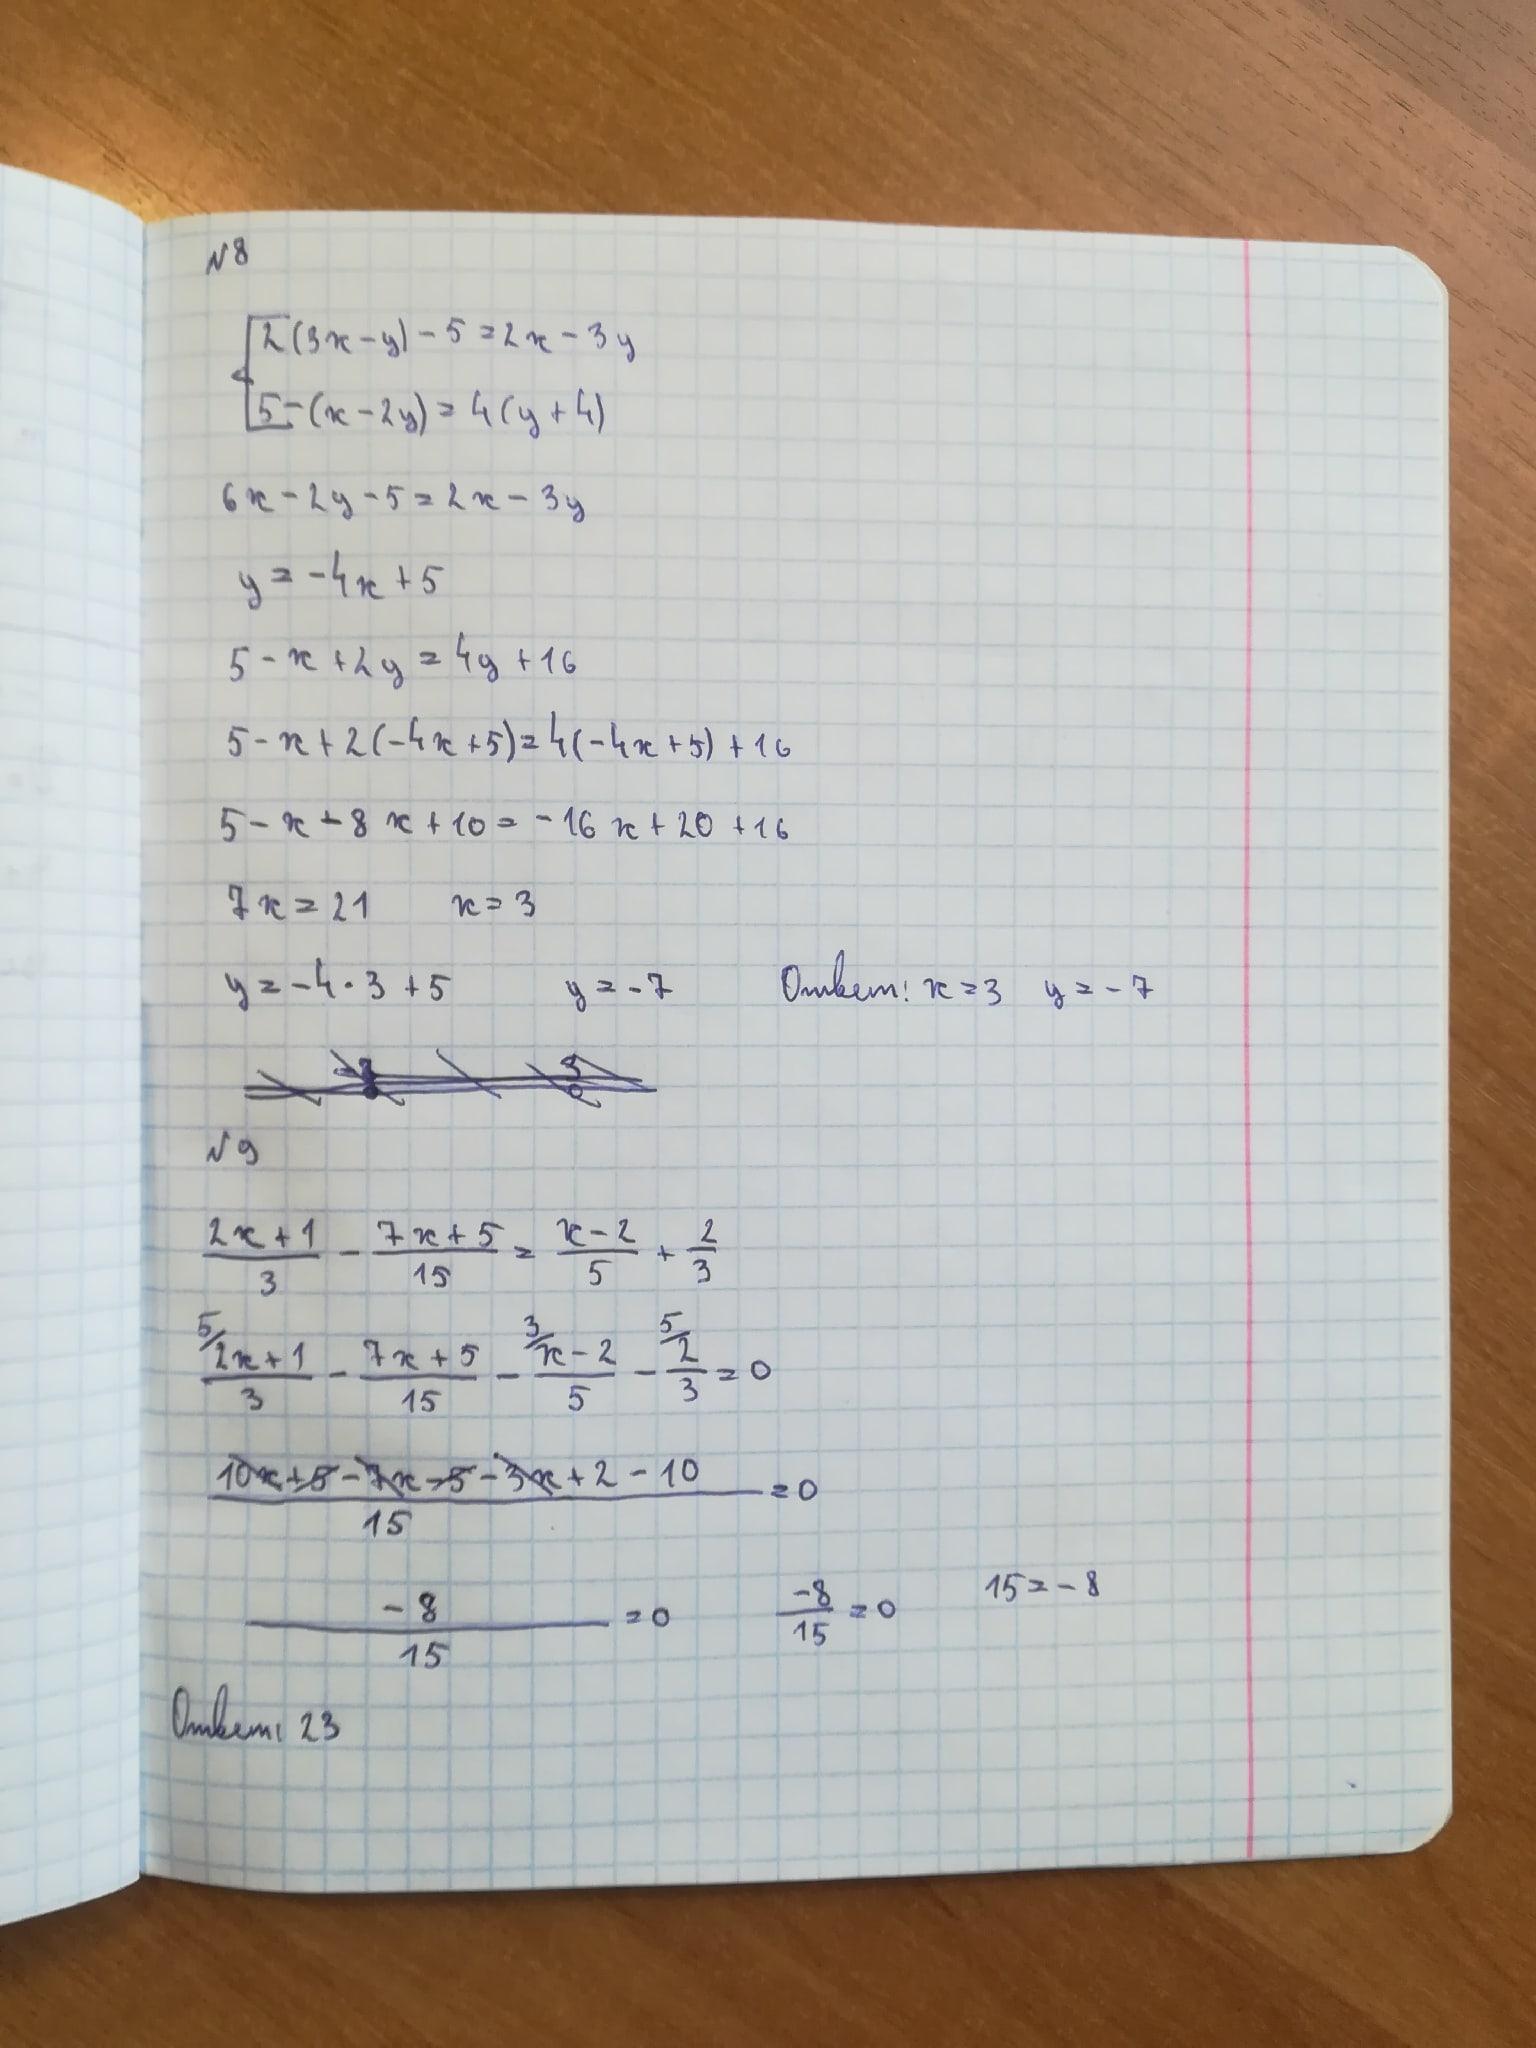 №8
2(3x-y)-5=2x-3y
5-(x-2y)=4(y+4)
6x-2y-5=2x-3y
y=-4x+5
5-x+2y=4y+16
5-x+2(-4x+5)=4(-4x+5)+16
5-x-8x+10=-16x+20+16
7x=21 x=3
y=-4·3+5 y=-7 Ответ: x=3 y=-7
-7 3
№9
(2x+1)/3 - (7x+5)/15 = (x-2)/5 + 2/3
5/ 3/ 5/
(2x+1)/3 - (7x+5)/15 - (x-2)/5 - 2/3 = 0
(10x+5-7x-5-3x+2-10)/15 = 0
-8/15 = 0 -8/15 = 0 15=-8
Ответ: 23